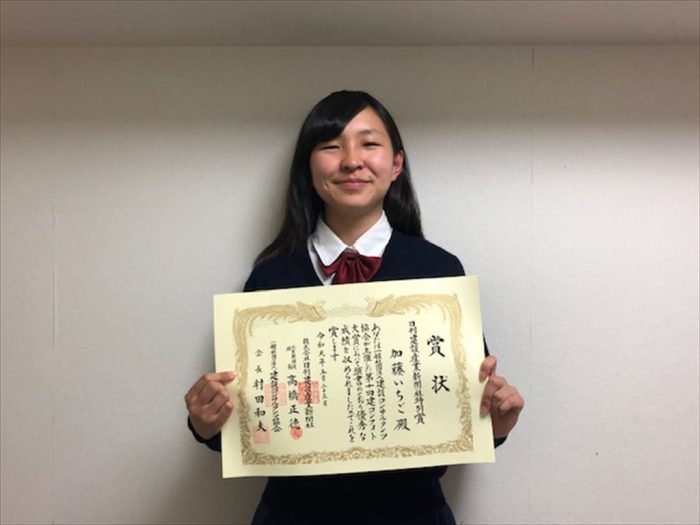 賞状
日刊建設産業新聞社特別賞
加藤いちご殿
あなたは一般社団法人建設コンサルタンツ
協会が主催した第十回建コンフォト
大賞において頭書のとおり優秀な
成績を収められましたのでこれを
賞します
令和元年五月二十三日
株式会社日刊建設産業新聞社
高橋正徳
一般社団法人建設コンサルタンツ協会
会長 村田和夫